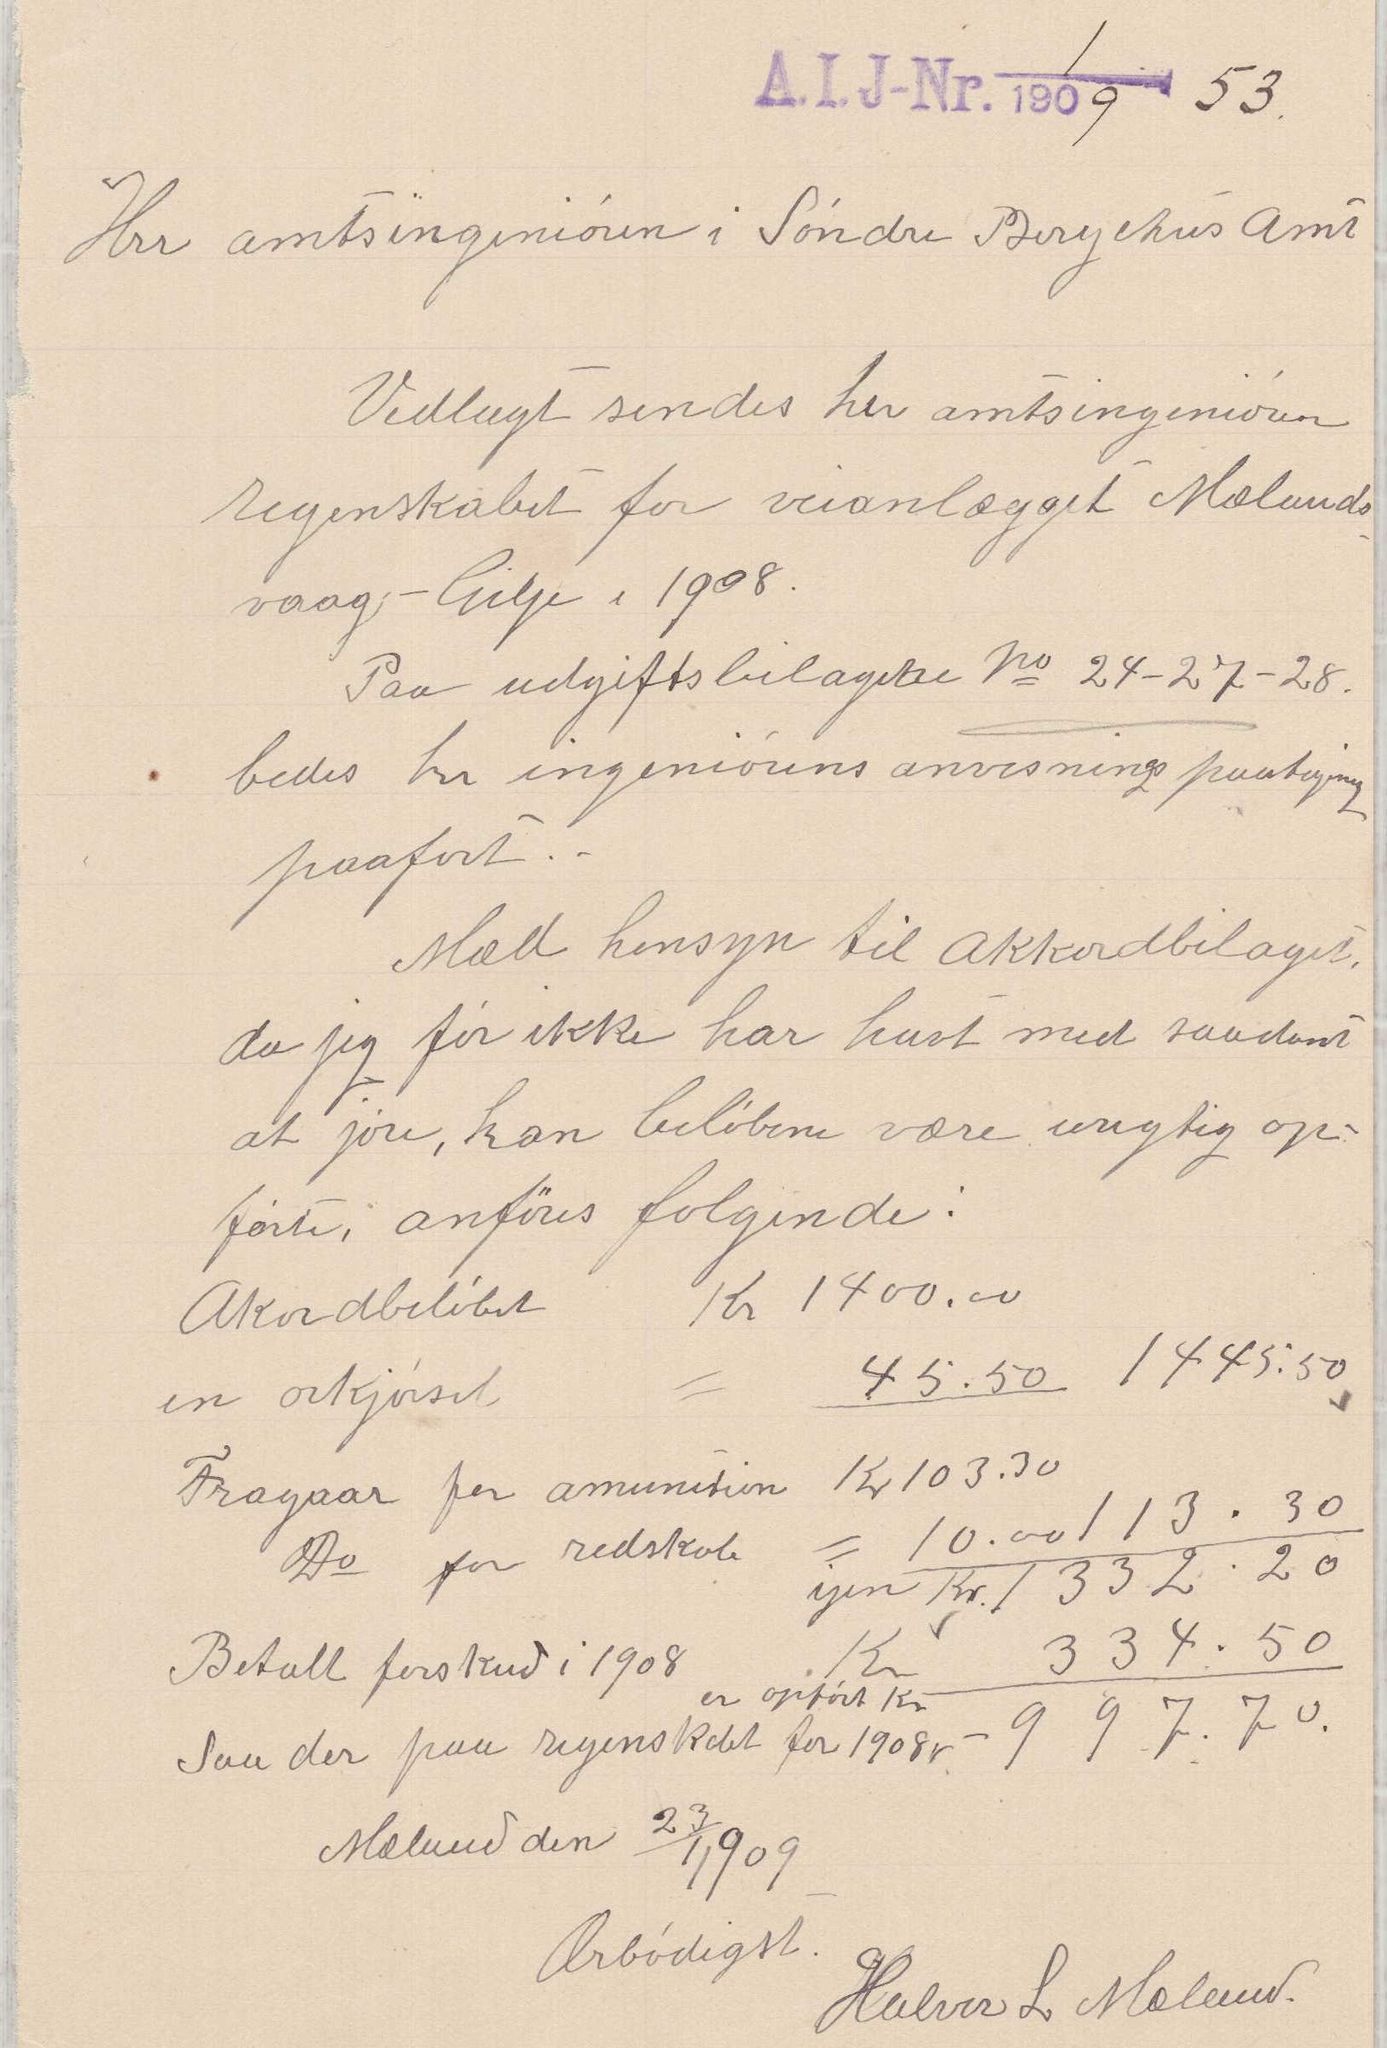 A.I.J-Nr. 1/1909 53.
Hrr amtsingeniören i Söndre Bergehus Amt
Vedlagt sendes hrr amtsingeniören
regenskabet for veianlægget Mælands-
vaag - Gilje i 1908.
Paa udgiftsbilagene No 24-27-28.
bedes hr ingeniörens anvisnings paategning
paafört. -
Mæd hensyn til Akkordbilaget,
da jeg för ikke har havt med saadant
at jöre, kan belöbene være urigtig op-
förte, anföres folgende:
Akordbelöbet Kr 1400.00
en orkjörsel = 45.50 1445.50
Fragaar for amunition Kr 103.30
Do for redskab = 10.00 113.30
igen Kr. 1332.20
Betalt forskud i 1908 Kr 334.50
er opfört Kr
Saa der paa regenskabet for 1908 - 997.70.
Mæland den 23/1 1909
Ærbödigst.
Halvor L Mæland.